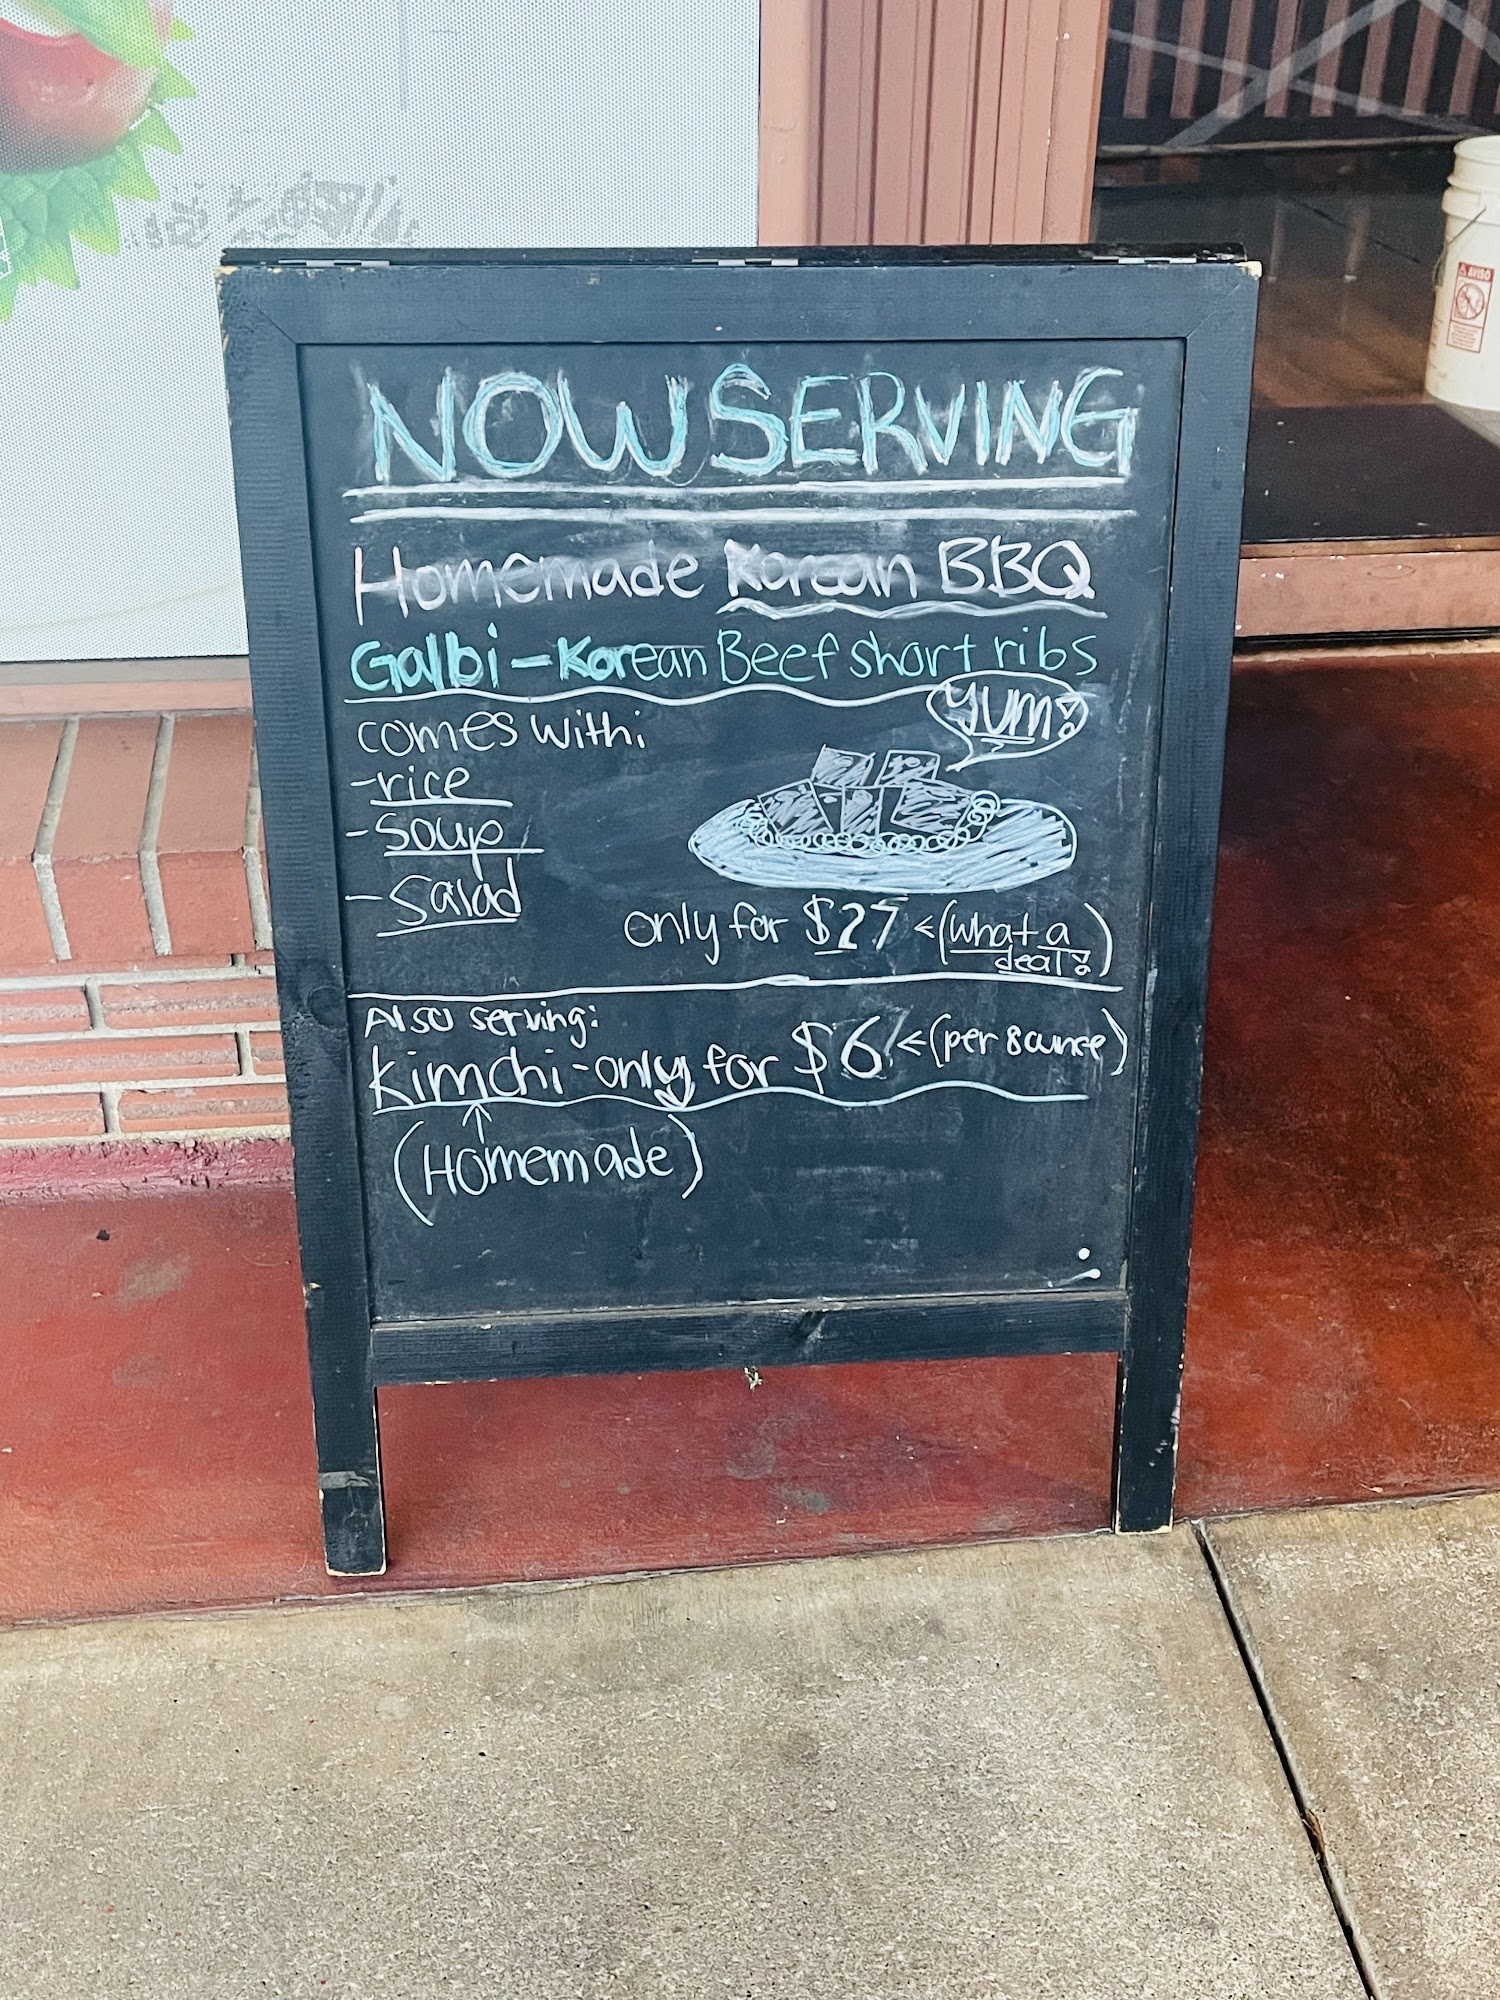 NOW SERVING
Homemade Korean BBQ
Galbi - Korean Beef short ribs
comes with:
- rice
- soup
- salad
YUM!
only for $27 ← (what a
deal!)
Also serving:
Kimchi - only for $6 ← (per 8 ounce)
(Homemade)
AVISO